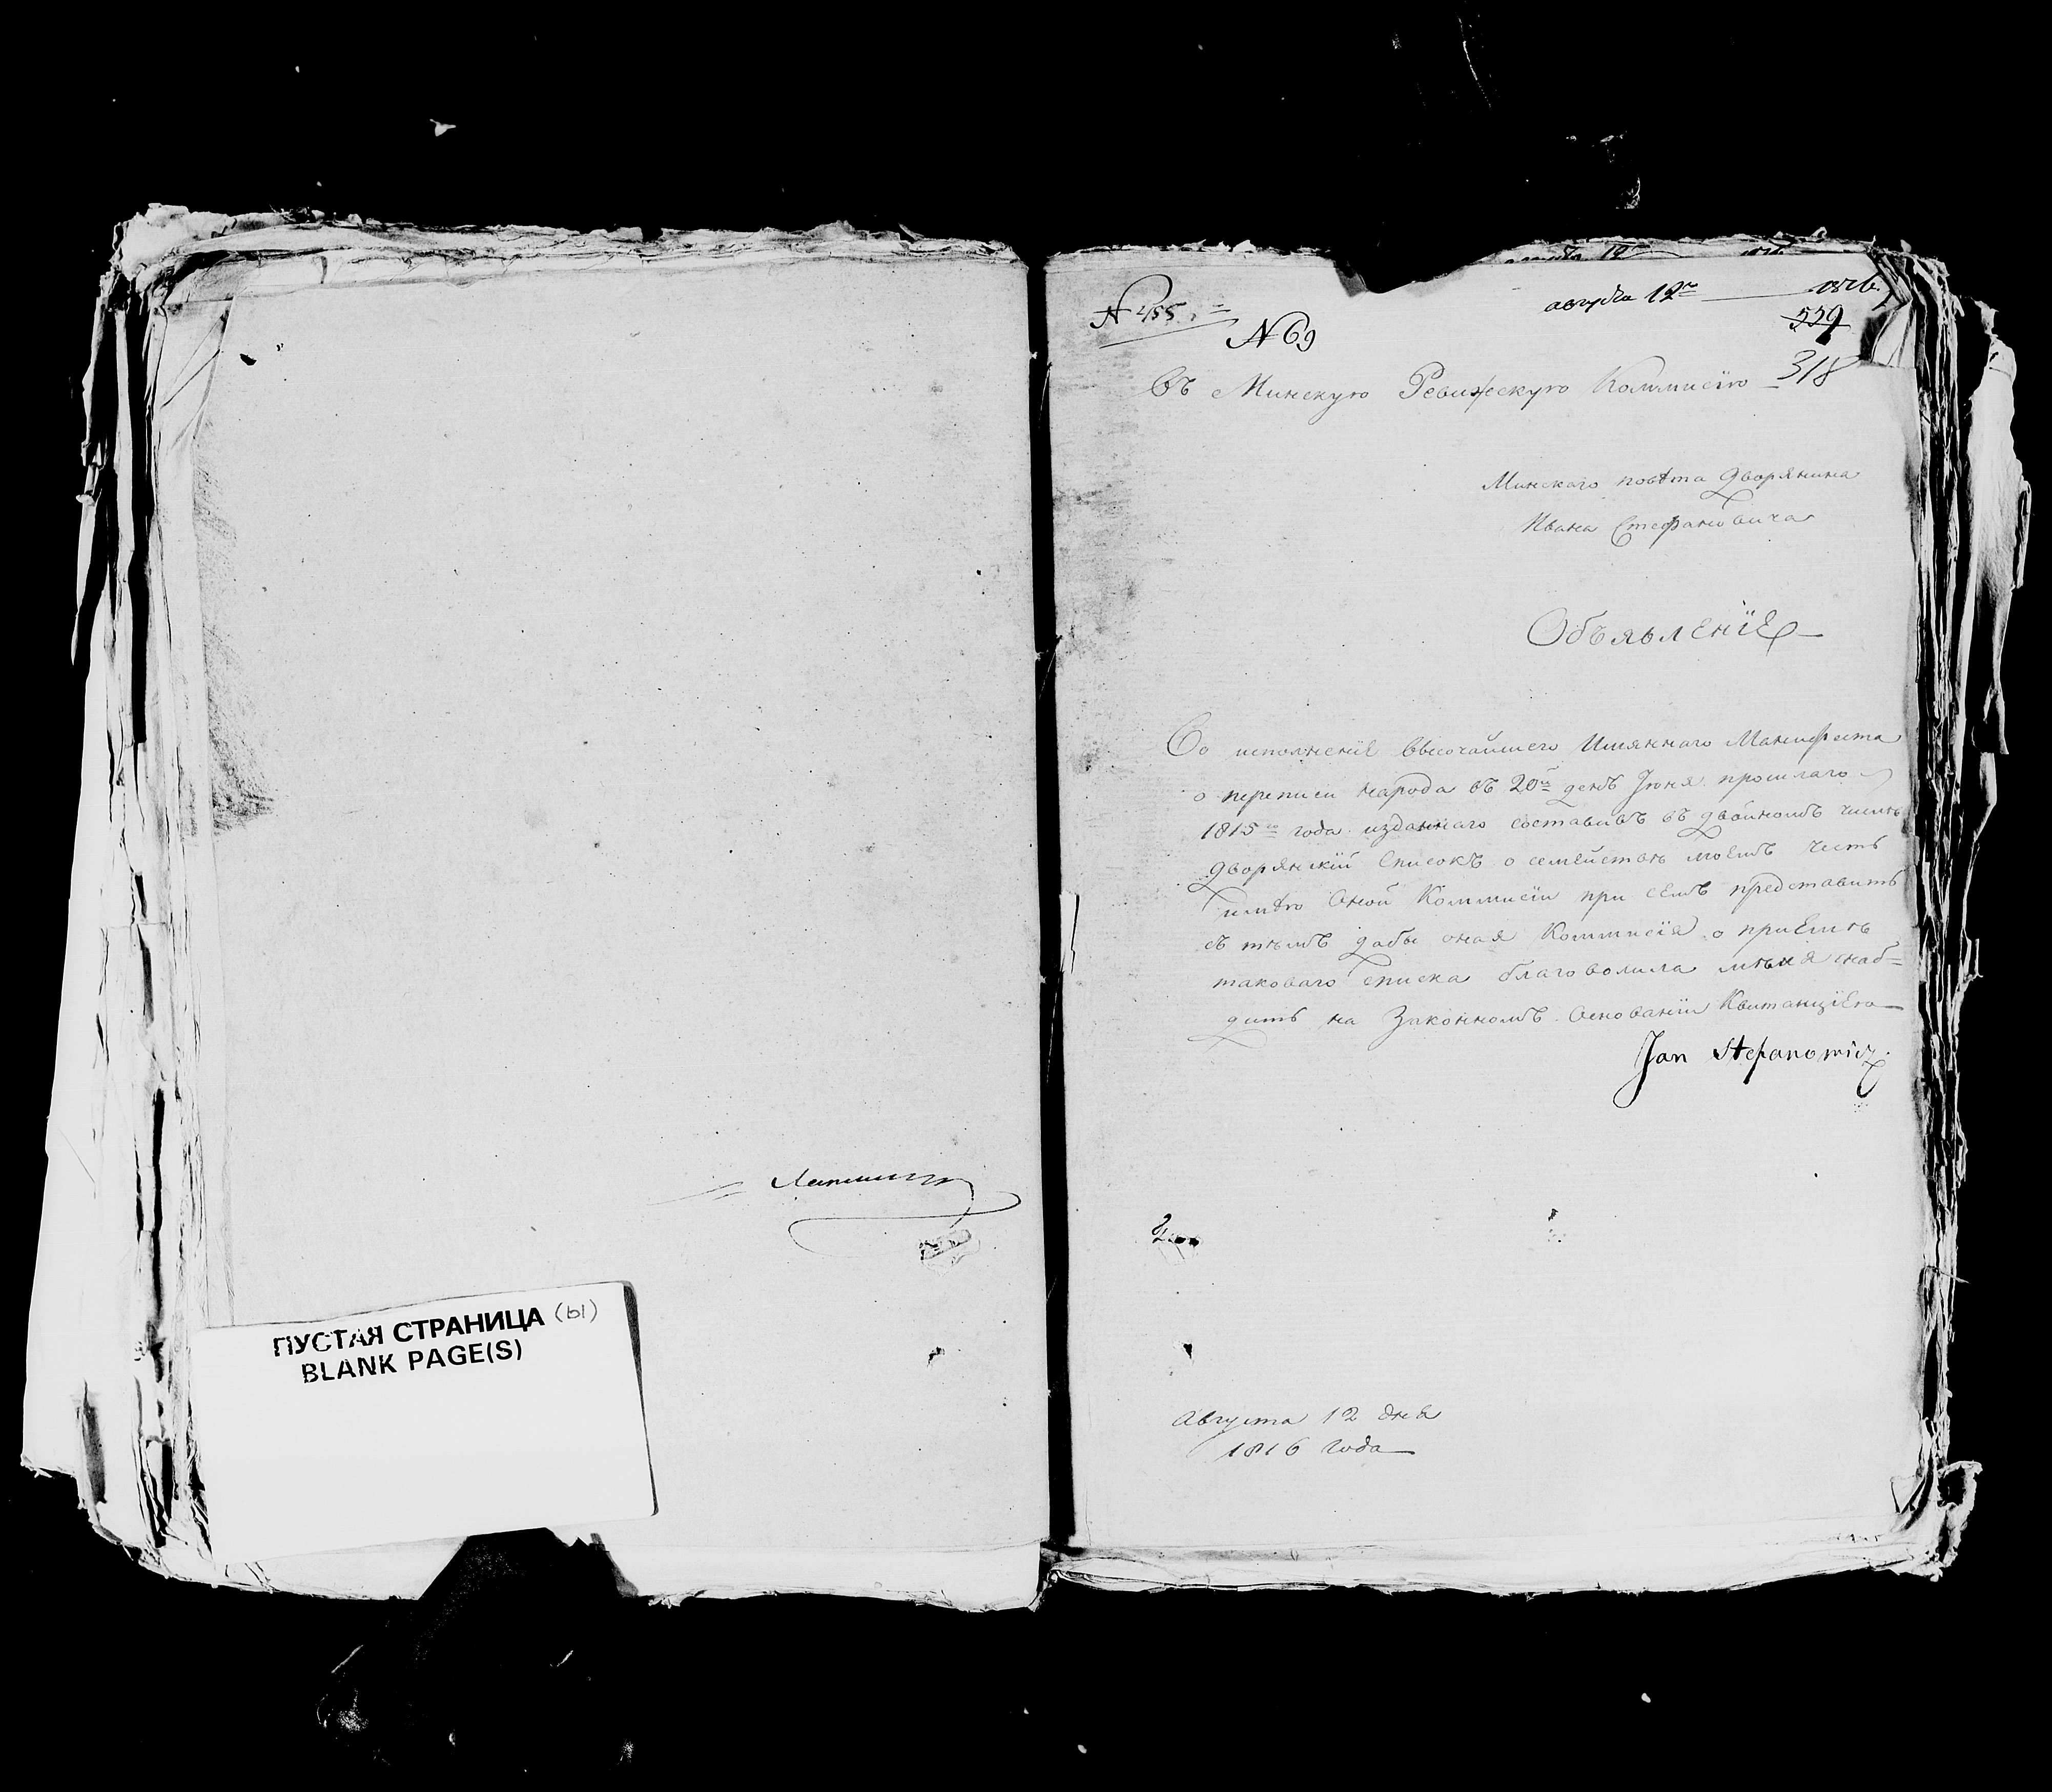 ПУСТАЯ СТРАНИЦА (ы)
BLANK PAGE(S)
№ 455
августа 12го 1816
№ 69
559
318
Въ Минскую Ревижскую Коммисїю
Минскаго повѣта дворянина
Ивана Стефановича
Объявленїе
Во исполненїе Высочайшего Имяннаго Манифеста
о переписи народа въ 20й день Іюня прошлаго
1815го года изданнаго составивъ въ двойномъ числѣ
дворянскїй Списокъ о семействѣ моемъ честь
имѣю Оной Коммисїи при семъ представить
съ тѣмъ дабы оная Коммисїя о приемѣ
таковаго списка благоволила мѣня снаб=
дить на Законномъ Основанїи Квитанцїею
Jan Stefanowicz.
Августа 12 дня
1816 года